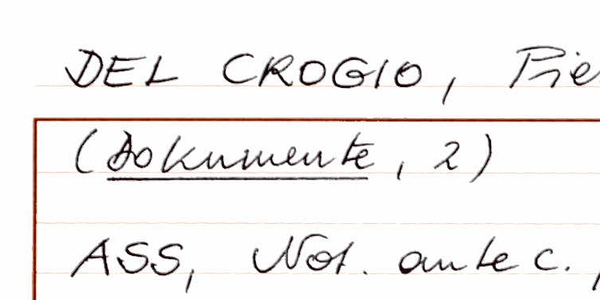 DEL CROGIO, Pie
(Dokumente, 2)
ASS, Not. antec.,